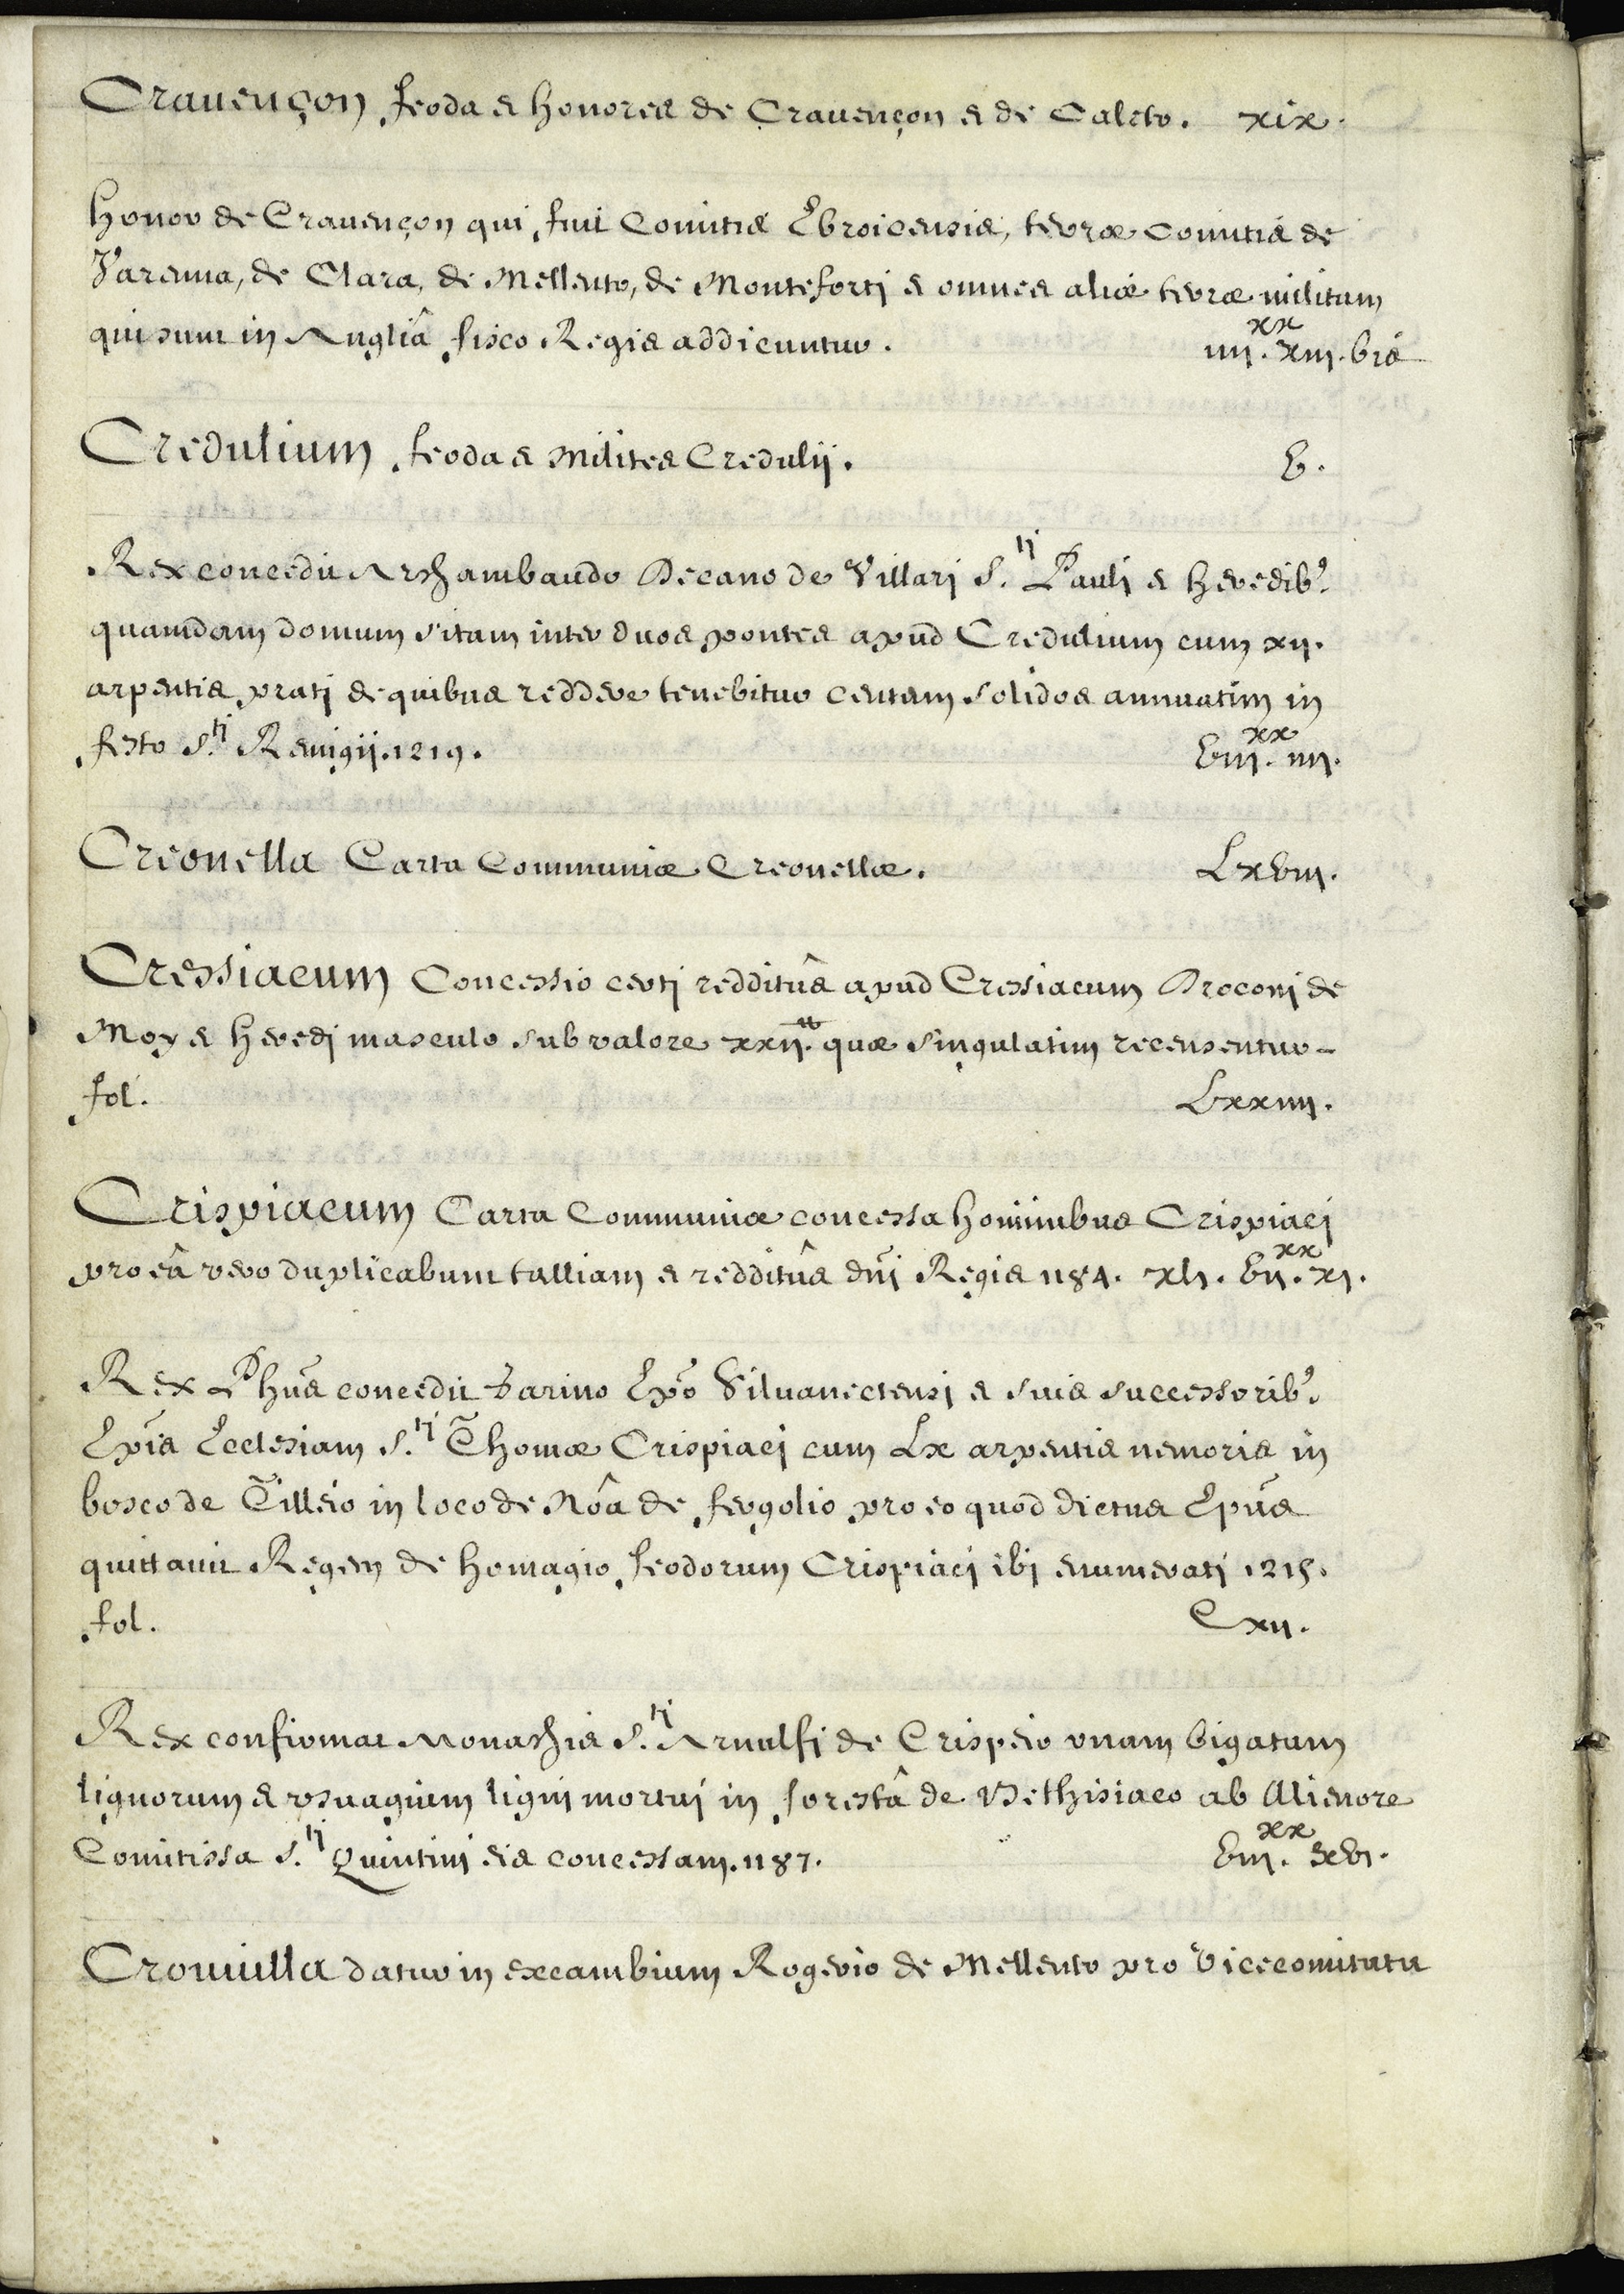 Crauençon feoda & honores de Crauençon & de Caleto. xix.
honor de Crauençon qui fuit Comitis Ebroicensis, terræ comitis de
Varenna, de Clara, de Mellento, de Monteforti & omnes aliæ terræ militum
qui sunt in Angliâ fisco Regis addicuntur. iiii.xx xiii. bis
Credulium feoda & milites Credulij. v.
Rex concedit Archambaudo Decano de Villari S.ti Pauli & heredib9
quamdam domum sitam inter duos pontes apud Credulium cum xii.
arpentis prati de quibus reddere tenebitur centum solidos annuatim in
festo S.ti Remigij. 1219. viii.xx iiii.
Creonella Carta Communiæ Creonellæ. Lxviii.
Cressiacum Concessio certi redditûs apud Cressiacum Droconi de
Moy & heredi masculo sub valore xxii.tt quæ singulatim recensentur-
fol. Lxxiiii.
Crispiacum Carta Communiæ concessa hominibus Crispiaci
pro eâ vero duplicabunt talliam & redditûs dñi Regis 1184. xli. vii.xx xi.
Rex Phũs concedit Garino Epõ Siluanectensi & suis successorib9
Epĩs Ecclesiam S.ti Thomæ Crispiaci cum Lx arpentis nemoris in
bosco de Tilleio in loco de Nôa de fergolio pro eo quod dictus Epũs
quittauit Regem de homagio feodorum Crispiaci ibi enumerati 1215.
fol. Cxii.
Rex confirmat Monachis S.ti Arnulfi de Crispeio vnam bigatam
lignorum & vsuagium ligni mortui in forestâ de Bethisiaco ab Alienore
Comitissa S.ti Quintini eis concessam. 1187. viii.xx xvi.
Crouuilla datur in excambium Rogerio de Mellento pro Vicecomitatu